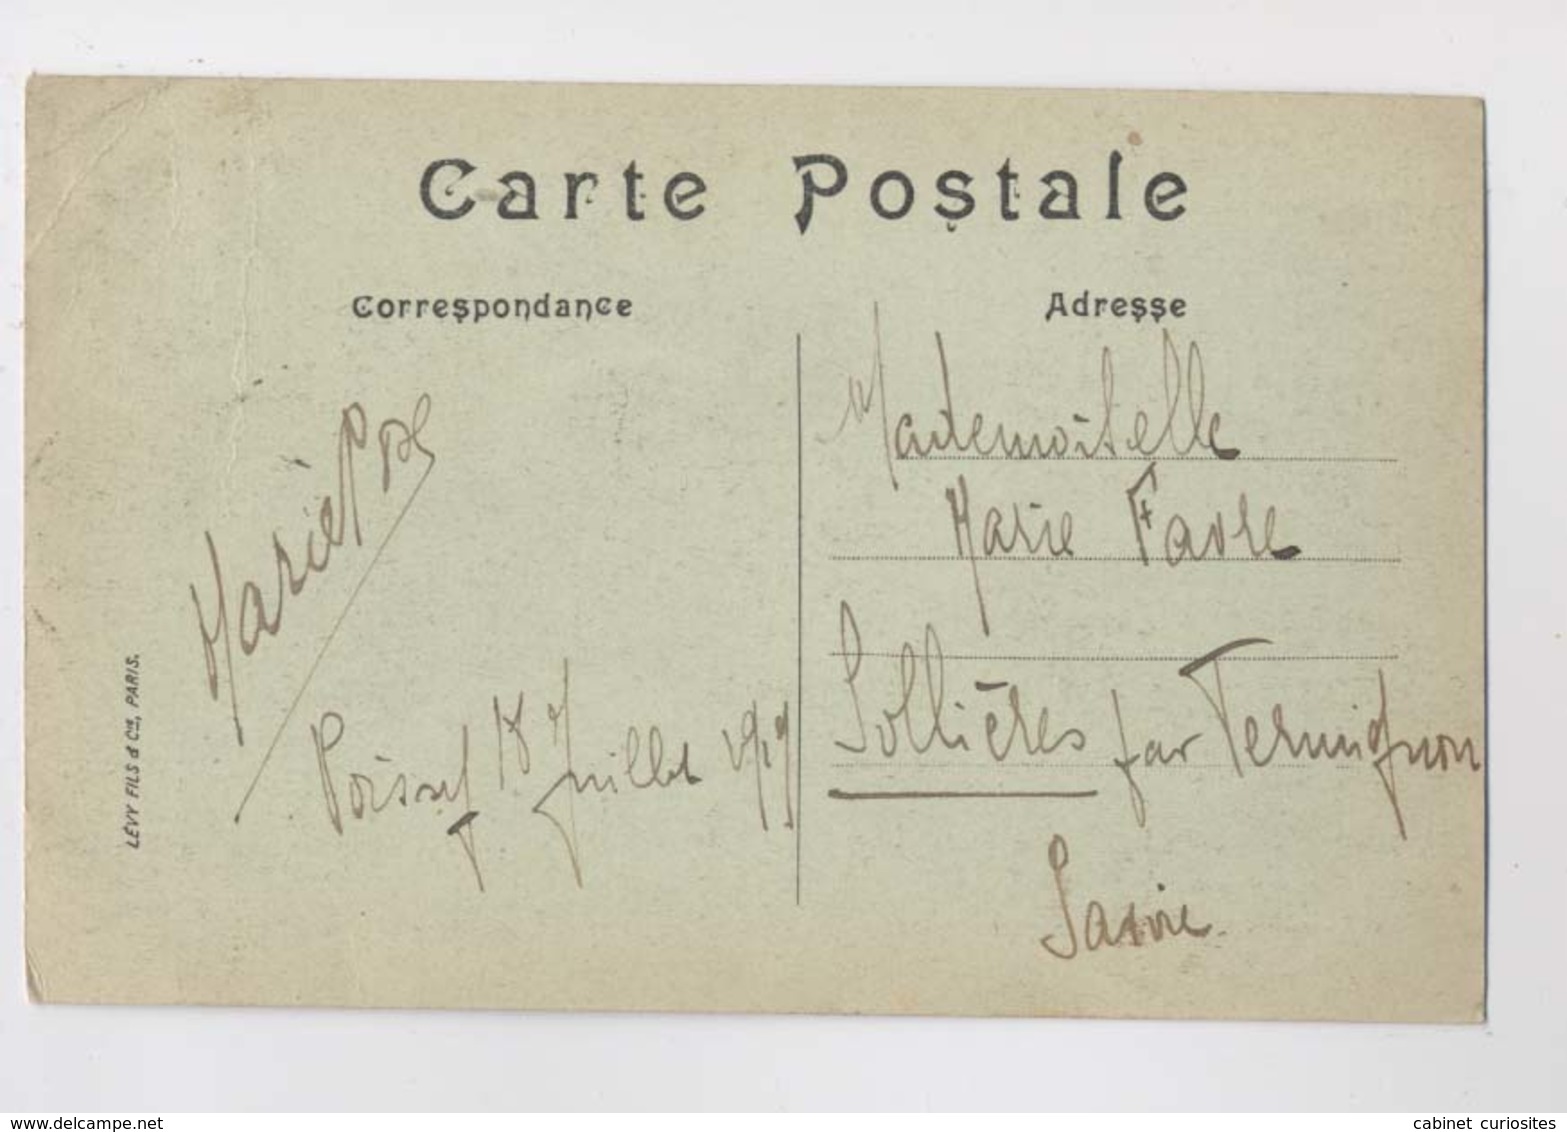 Carte Postale
Correspondance
Marie
Poissy 18 Juillet 1919
LÉVY FILS & Cie, PARIS.
Adresse
Mademoiselle
Marie Favre
Sollières par Termignon
Savoie
www.delcampe.net
cabinet curiosites